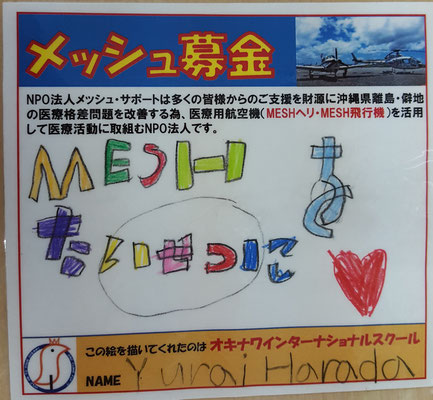 メッシュ募金
NPO法人メッシュ・サポートは多くの皆様からのご支援を財源に沖縄県離島・僻地
の医療格差問題を改善する為、医療用航空機(MESHヘリ・MESH飛行機)を活用
して医療活動に取組むNPO法人です。
MESH を
たいせつに
この絵を描いてくれたのは オキナワインターナショナルスクール
NAME Yurai Harada